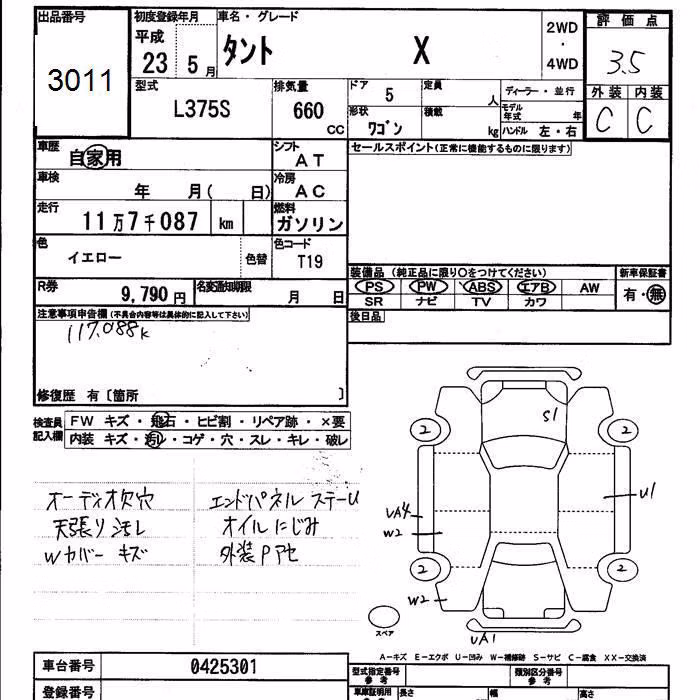 出品番号 3011
初度登録年月 平成 23 5 月
車名・グレード タント X
2WD ・ 4WD
評価点 3.5
外装 内装
C C
型式 L375S
排気量 660 CC
ドア 5
形状 ワゴン
定員 人
積載 kg
ディーラー・並行
モデル年式 年
ハンドル 左・右
車歴 自家用
シフト AT
車検 年 月( 日)
冷房 AC
走行 11万7千087 km
燃料 ガソリン
色 イエロー 色替
色コード T19
R券 9,790 円
名変通知期限 月 日
セールスポイント(正常に機能するものに限ります)
装備品 (純正品に限り○をつけてください)
PS PW ABS エアB AW
SR ナビ TV カワ
新車保証書
有・無
後日品
注意事項申告欄 (不具合内容等は具体的に記入して下さい)
117,088k
修復歴 有〔箇所 〕
検査員記入欄
FW キズ・飛石・ヒビ割・リペア跡・×要
内装 キズ・汚レ・コゲ・穴・スレ・キレ・破レ
オーディオ欠穴
天張り汚レ
Wカバー キズ
エンドパネル ステーU
オイルにじみ
外装Pアセ
S1
2 2
UA4
U1
W2
2 2
W2
UA1
スペア
A-キズ E-エクボ U-凹み W-補修跡 S-サビ C-腐食 XX-交換済
車台番号 0425301
登録番号
型式指定番号 参考
類別区分番号 参考
車庫証明用 参考
長さ 幅 高さ